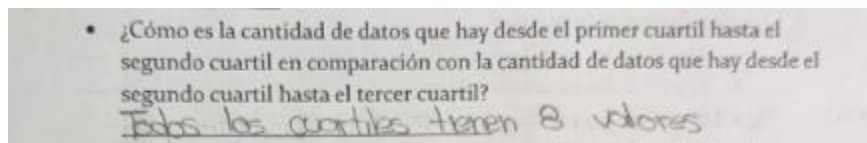 • ¿Cómo es la cantidad de datos que hay desde el primer cuartil hasta el
segundo cuartil en comparación con la cantidad de datos que hay desde el
segundo cuartil hasta el tercer cuartil?
Todos los cuartiles tienen 8 valores